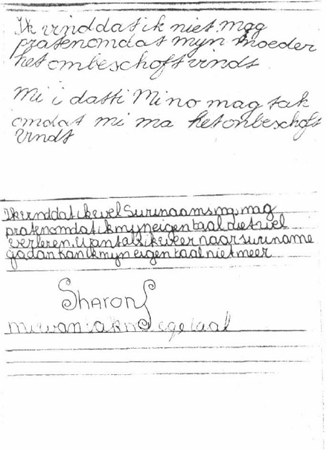 Ik vind dat ik niet mag
praten omdat mijn moeder
het ombeschoft vindt
Mi i datti Mi no mag tak
omdat mi ma het onbeschoft
vindt
Ik vind dat ik wel Surinaams mag
praten omdat ik mijn eigen taal niet wil
verleren. Want als ik weer naar suriname
ga dan kan ik mijn eigen taal niet meer
Sharon
mi wan takn egetaal